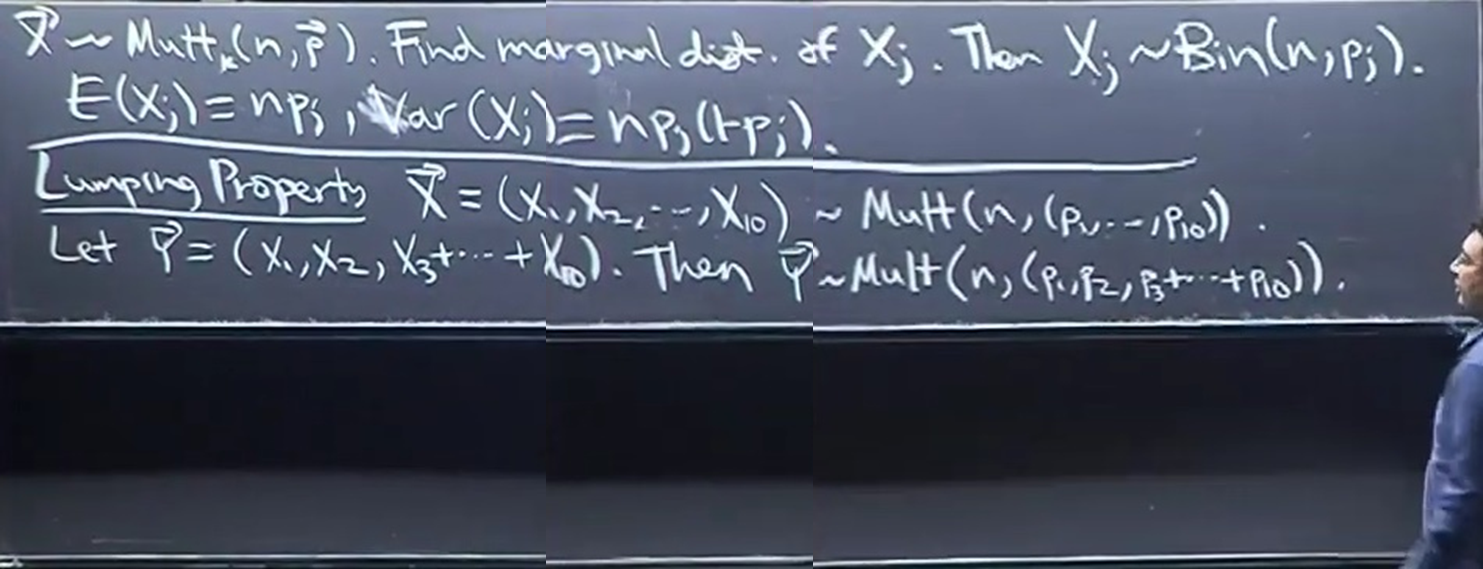 X⃗ ~ Mult_k(n, p⃗). Find marginal dist. of X_j. Then X_j ~ Bin(n, p_j).
E(X_j) = np_j, Var(X_j) = np_j(1-p_j).
Lumping Property X⃗ = (X₁, X₂, ..., X₁₀) ~ Mult(n, (p₁, ..., p₁₀)).
Let Y⃗ = (X₁, X₂, X₃+⋯+X₁₀). Then Y⃗ ~ Mult(n, (p₁, p₂, p₃+⋯+p₁₀)).